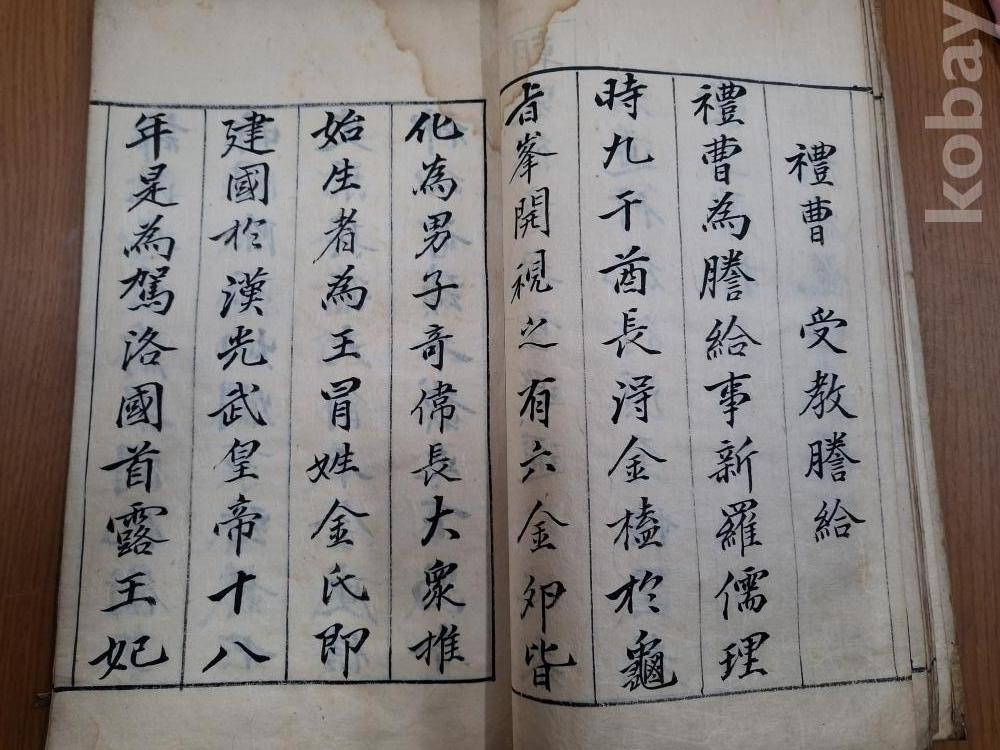 禮曹 受教謄給
禮曹為謄給事新羅儒理
時九干酋長淂金榼於龜
旨峯開視之有六金卵皆
化為男子奇偉長大衆推
始生者為王冒姓金氏即
建國於漢光武皇帝十八
年是為駕洛國首露王妃
kobay